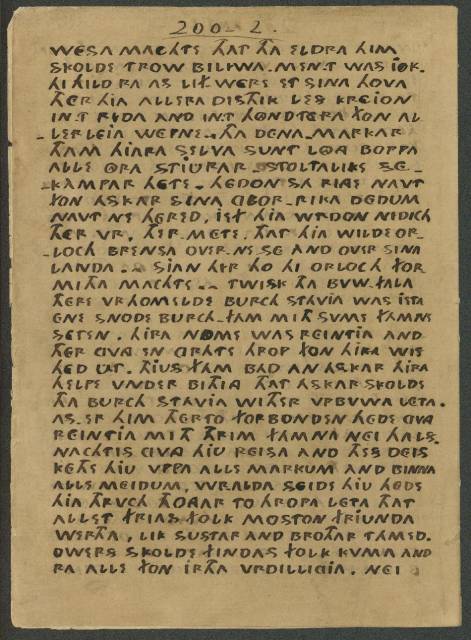 200 2.
WESA MACHTE THAT THA ELDRA HIM
SKOLDE TROW BILIWA. MEN.T WAS IOK.
HI HILD RA AS LIF WERE ET SINA HOVA
THER HIA ALLERA DISTHIK LES KREION
IN.T RYDA AND IN.T HONDTERA FON AL
-LERLEIA WEPNE. THA DENA MARKAR
THAM HIARA SELVA SUNT LOG BOPPA
ALLE ORA STIURAR. STOLTALIKE SE-
-KAMPAR HETE. HEDON SA RING NAVT
FON ASKAR SINA GLOR-RIKA DEDUM
NAVT NE HERED, IEF HIA WRDON NIDICH
THER VR. THER.METE. THAT HIA WILDE OR-
-LOCH BRENGA OVER.NE SE AND OVER SINA
LANDA. SIAN HER HO HI ORLOCH FOR
MITHA MACHTE. TWISK THA BUW-FALA
THERE VRHOMELDE BURCH STAVIA WAS JETA
ENE SNODE BURCH-FAM MITH SVME FAMNA
SETEN. HIRA NOME WAS REINTIA AND
THER GVNG EN GRATE HROP FON HIRA WIS
HED UT. THIUS FAM BAD AN ASKAR HIRA
HELPE VNDER BITHIA THAT ASKAR SKOLDE
THA BURCH STAVIA WITHER VPBVWA LETA.
AS.ER HIM THERTO FORBONDEN HEDE GVNG
REINTIA MITH THRIM FAMNA NEI HALS.
NACHTIS GVNG HIU REISA AND THES DEIS
KETHE HIU VPPA ALLE MARKUM AND BINNA
ALLE MEIDUM. WRALDA SEIDE HIU HEDE
HIA THRVCH THONGAR TO HROPA LETA THAT
ALLET FRIAS FOLK MOSTON FRIUNDA
WERTHA, LIK SUSTAR AND BROTHAR TAMED.
OWERS SKOLDE FINDAS FOLK KVMA AND
RA ALLE FON IRTHA VRDILLIGIA. NEI